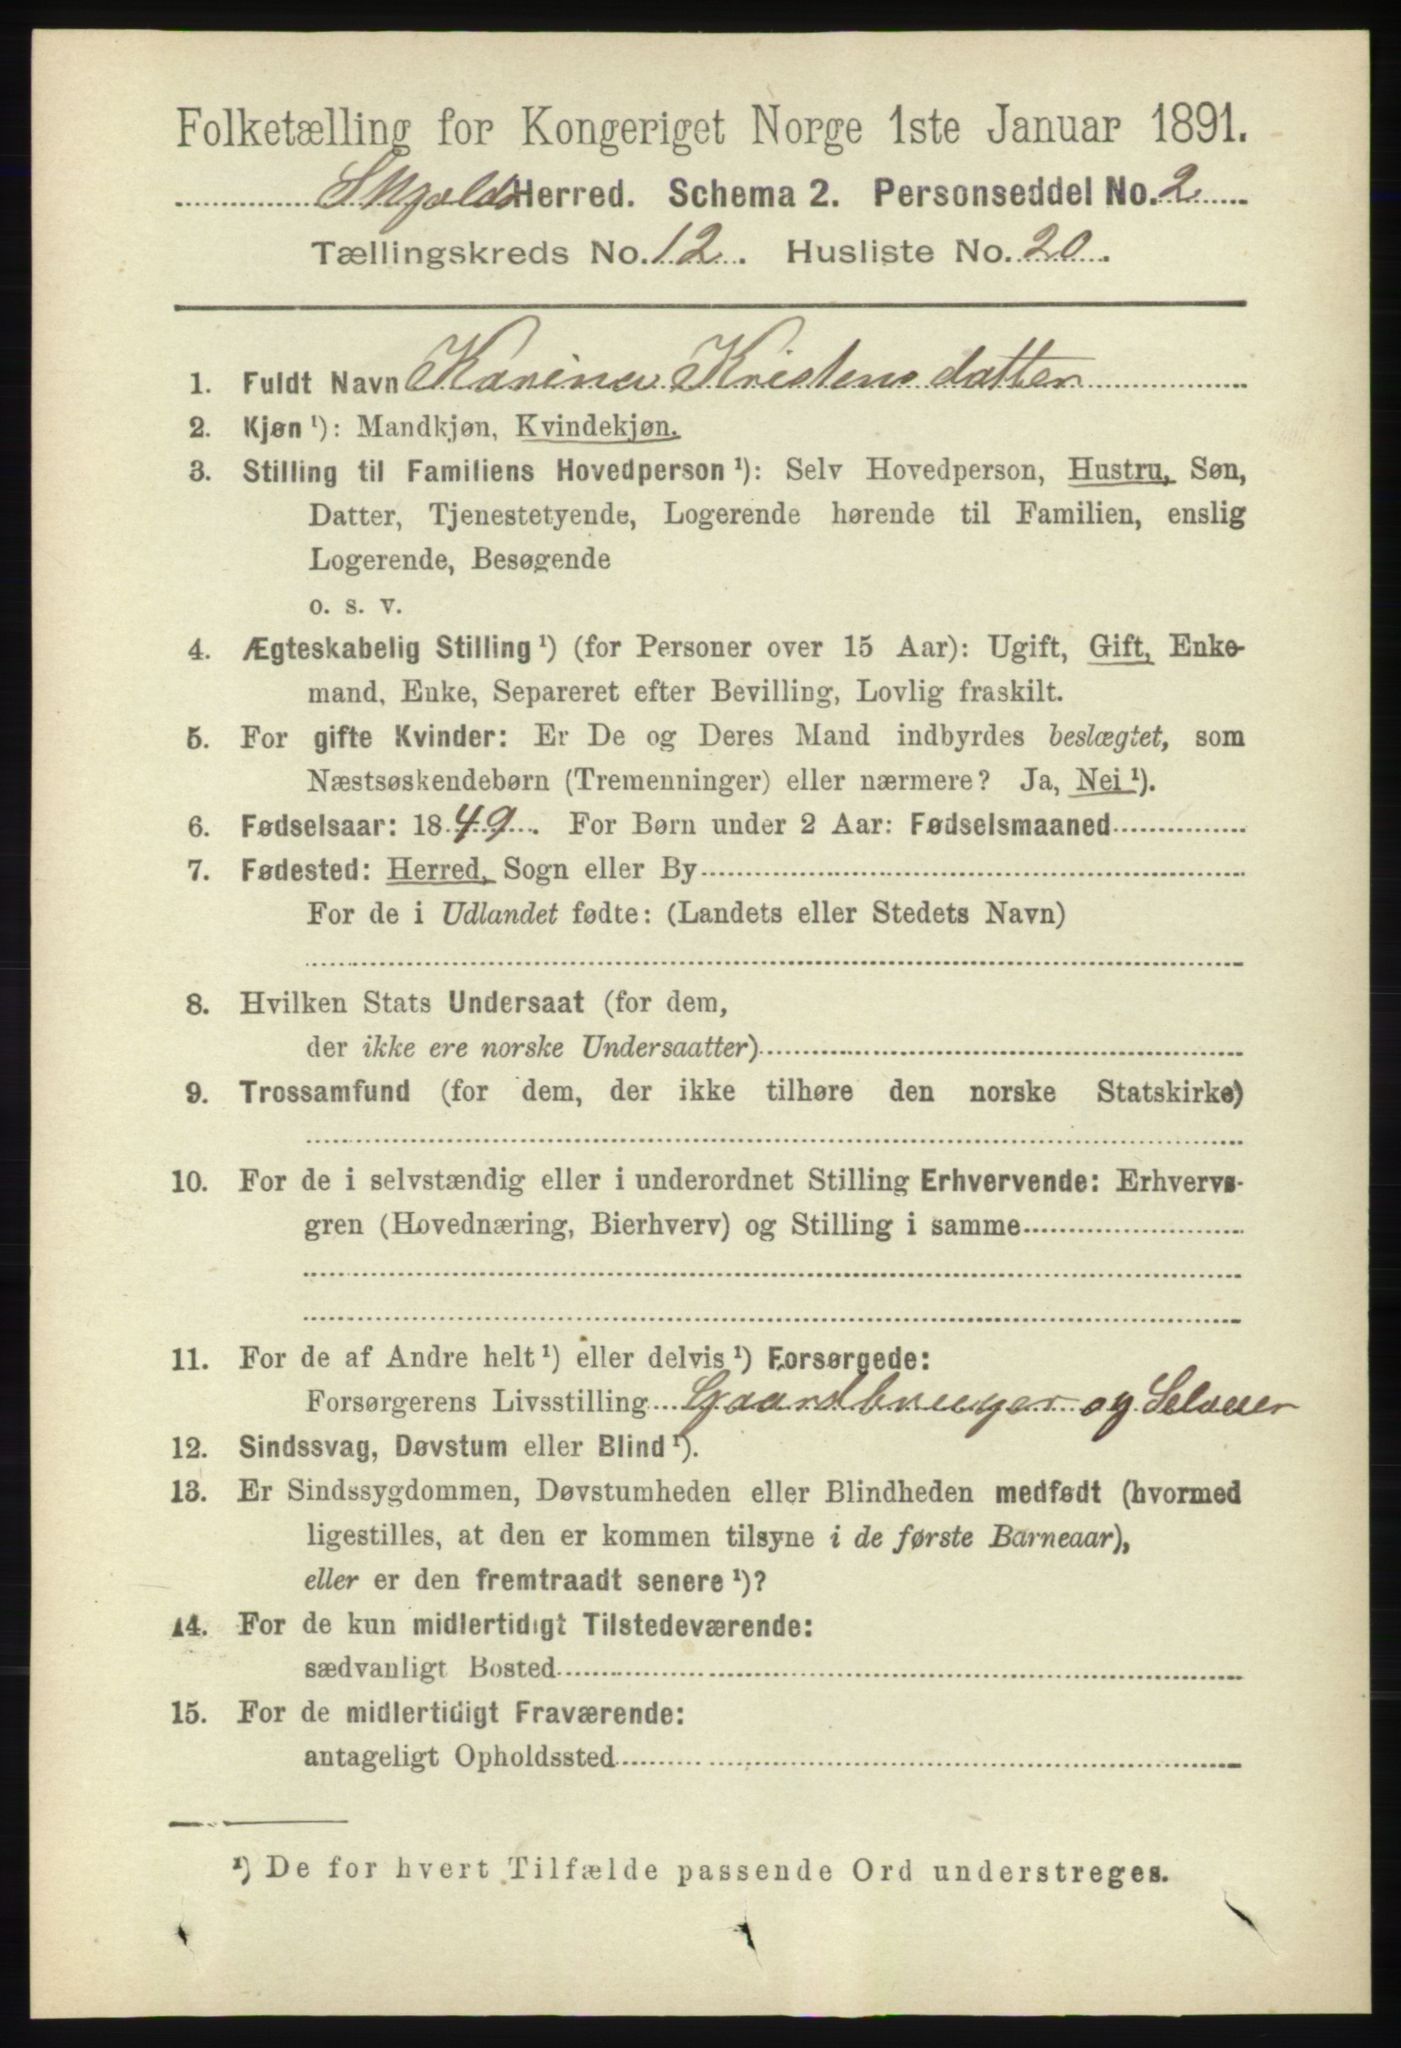 Folketælling for Kongeriget Norge 1ste Januar 1891.
Skjolds Herred. Schema 2. Personseddel No. 2
Tællingskreds No. 12. Husliste No. 20.
1. Fuldt Navn Karina Kristensdatter
2. Kjøn ¹): Mandkjøn, Kvindekjøn.
3. Stilling til Familiens Hovedperson ¹): Selv Hovedperson, Hustru, Søn,
Datter, Tjenestetyende, Logerende hørende til Familien, enslig
Logerende, Besøgende
o. s. v.
4. Ægteskabelig Stilling ¹) (for Personer over 15 Aar): Ugift, Gift, Enke-
mand, Enke, Separeret efter Bevilling, Lovlig fraskilt.
5. For gifte Kvinder: Er De og Deres Mand indbyrdes beslægtet, som
Næstsøskendebørn (Tremenninger) eller nærmere? Ja, Nei ¹).
6. Fødselsaar: 1849. For Børn under 2 Aar: Fødselsmaaned
7. Fødested: Herred, Sogn eller By
For de i Udlandet fødte: (Landets eller Stedets Navn)
8. Hvilken Stats Undersaat (for dem,
der ikke ere norske Undersaatter)
9. Trossamfund (for dem, der ikke tilhøre den norske Statskirke)
10. For de i selvstændig eller i underordnet Stilling Erhvervende: Erhvervs-
gren (Hovednæring, Bierhverv) og Stilling i samme
11. For de af Andre helt ¹) eller delvis ¹) Forsørgede:
Forsørgerens Livsstilling Gaardbruger og Selveier
12. Sindssvag, Døvstum eller Blind ¹).
13. Er Sindssygdommen, Døvstumheden eller Blindheden medfødt (hvormed
ligestilles, at den er kommen tilsyne i de første Barneaar),
eller er den fremtraadt senere ¹)?
14. For de kun midlertidigt Tilstedeværende:
sædvanligt Bosted
15. For de midlertidigt Fraværende:
antageligt Opholdssted
¹) De for hvert Tilfælde passende Ord understreges.